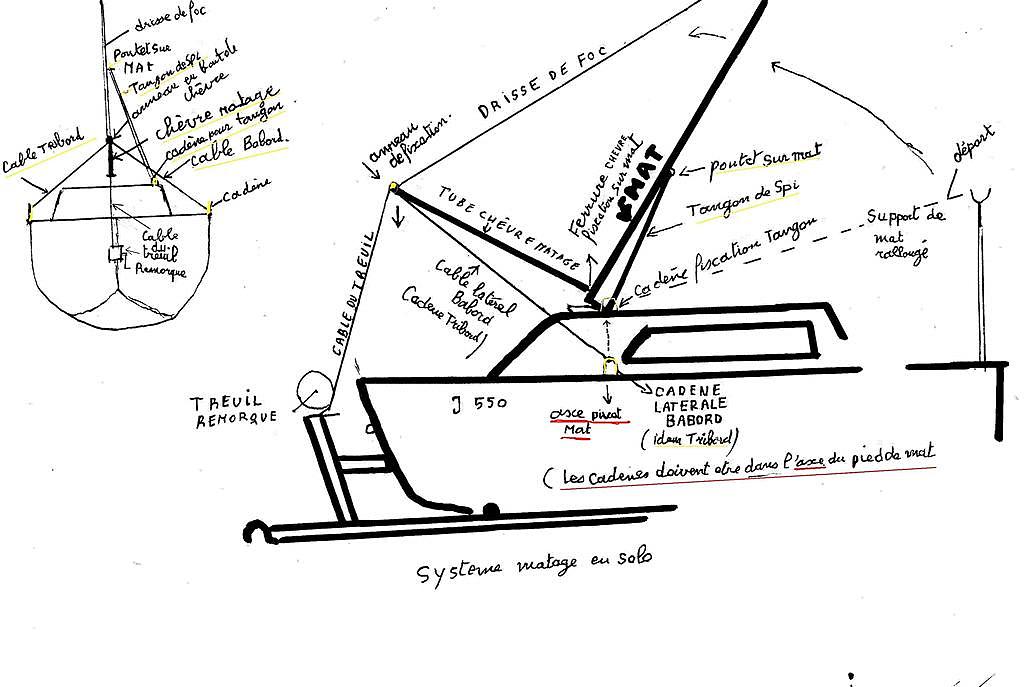 drisse de foc
Pontet sur
MAT
Tangon de Spi
anneau en bout de
chèvre
chèvre matage
cadène pour tangon
Cable Babord
Cable Tribord
Cadène
Cable
du
treuil
Remorque
DRISSE DE FOC
anneau
de fixation.
TUBE CHÊVRE MATAGE
Ferrure CHEVRE
fixcation sur mat
MAT
pontet sur mat
Tangon de Spi
cadène fixcation Tangon
départ
Support de
mat
rallongé
CABLE DU TREUIL
Cable latérel
Babord
Cadene Tribord)
TREUIL
REMORQUE
J 550
axce pivot
Mat
CADENE
LATERALE
BABORD
(idem Tribord)
(Les cadenes doivent etre dans l'axce du pied de mat
Systeme matage en solo